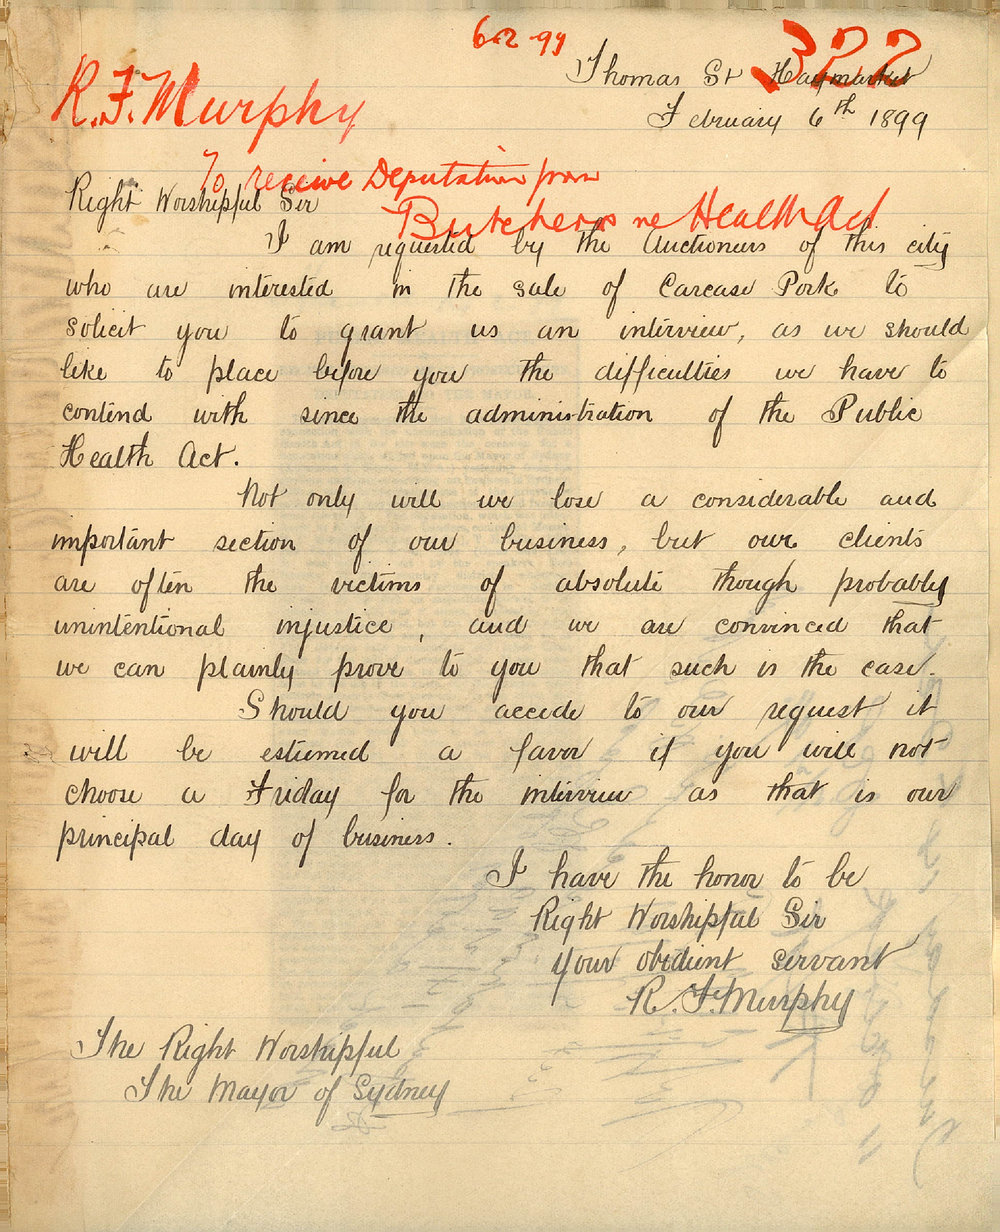 6-2 99
322
Thomas St Haymarket
R. F. Murphy
February 6th 1899
To receive Deputation from
Right Worshipful Sir
Butchers re Health Act
I am requested by the Auctioneers of this city
who are interested in the sale of Carcase Pork to
solicit you to grant us an interview, as we should
like to place before you the difficulties we have to
contend with since the administration of the Public
Health Act.
Not only will we lose a considerable and
important section of our business, but our clients
are often the victims of absolute though probably
unintentional injustice, and we are convinced that
we can plainly prove to you that such is the case.
Should you accede to our request it
will be esteemed a favor if you will not
choose a Friday for the interview as that is our
principal day of business.
I have the honor to be
Right Worshipful Sir
your obedient servant
R. F. Murphy
The Right Worshipful
The Mayor of Sydney